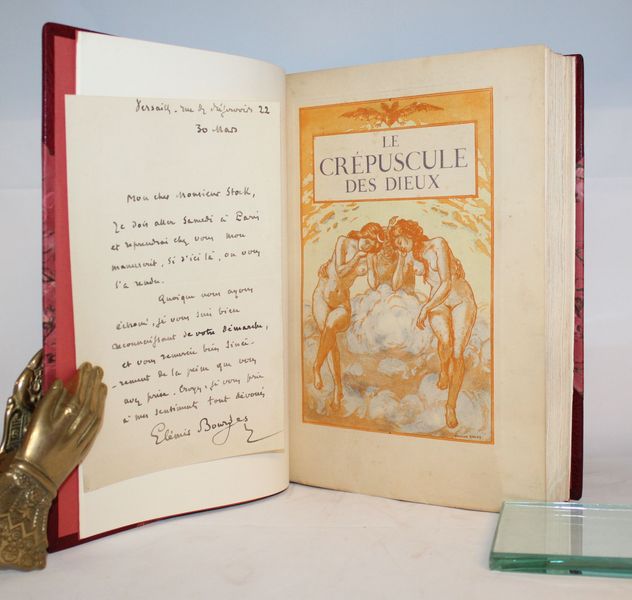 Versailles - rue de 22
30 Mars
Mon cher Monsieur Stock,
Je dois aller samedi à Paris
et reprendrai chez vous mon
manuscrit, si d'ici là, on vous
l'a rendu.
Quoique nous ayons
échoué, je vous suis bien
reconnaissant de votre démarche,
et vous remercie bien sincè-
-rement de la peine que vous
avez prise. Croyez, je vous prie
à mes sentiments tout dévoués
Elémir Bourges
LE
CRÉPUSCULE
DES DIEUX